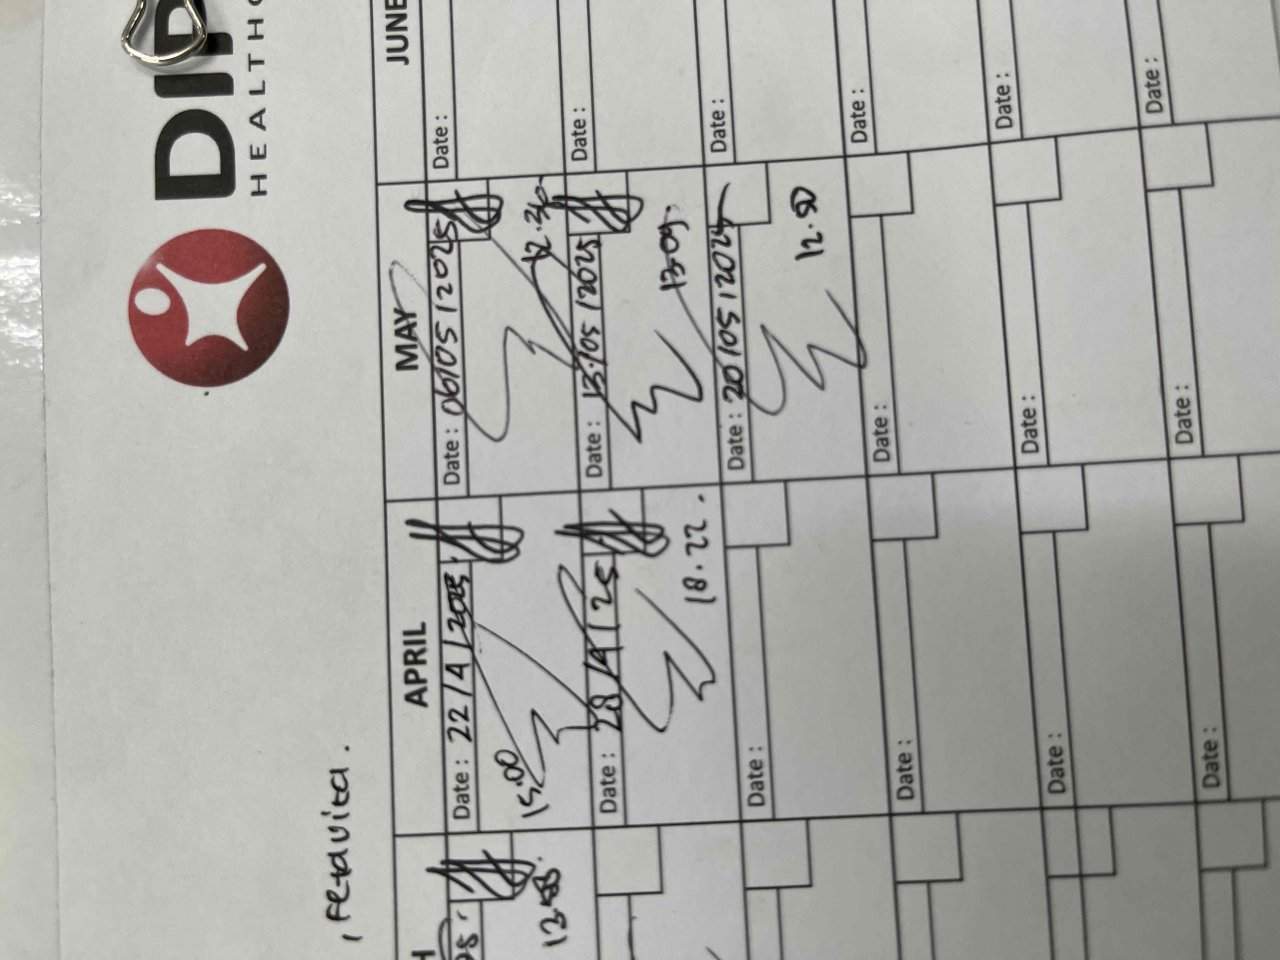 HEALTHC
, Fetavita.
APRIL
MAY
JUNE
Date: 22/4/2025
15.00
Date: 06/05/2025
12.30
Date:
Date: 28/4/25
18.22.
Date: 13/05/2025
13.09.
Date:
Date:
Date: 20/05/2025
12.50
Date:
Date:
Date:
Date:
Date:
Date:
Date:
Date:
Date:
Date: